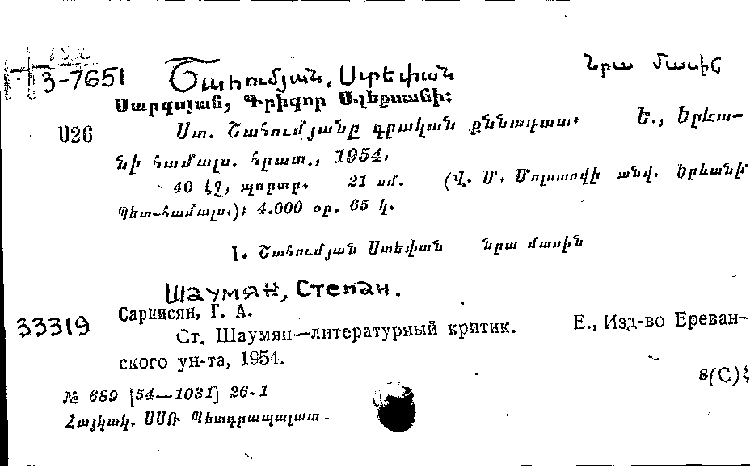 3-7651 Շահումյան, Ստեփան Նրա մասին
Սարգսյան, Գրիգոր Ալեքսանի։
Ս26 Ստ. Շահումյանը գրական քննադատ։ Ե., Երևա-
նի համալս. հրատ., 1954.
40 էջ, պորտր. 21 սմ. (Վ. Մ. Մոլոտովի անվ. Երևանի
Պետ. համալս.)։ 4.000 օր. 65 կ.
1. Շահումյան Ստեփան նրա մասին
Шаумян, Степан.
Саркисян, Г. А.
33319 Ст. Шаумян—литературный критик. Е., Изд-во Ереван-
ского ун-та, 1954.
8(С)
№ 689 [54—1031] 26-1
Հայկակ. ՍՍՌ Պետգրապալատ